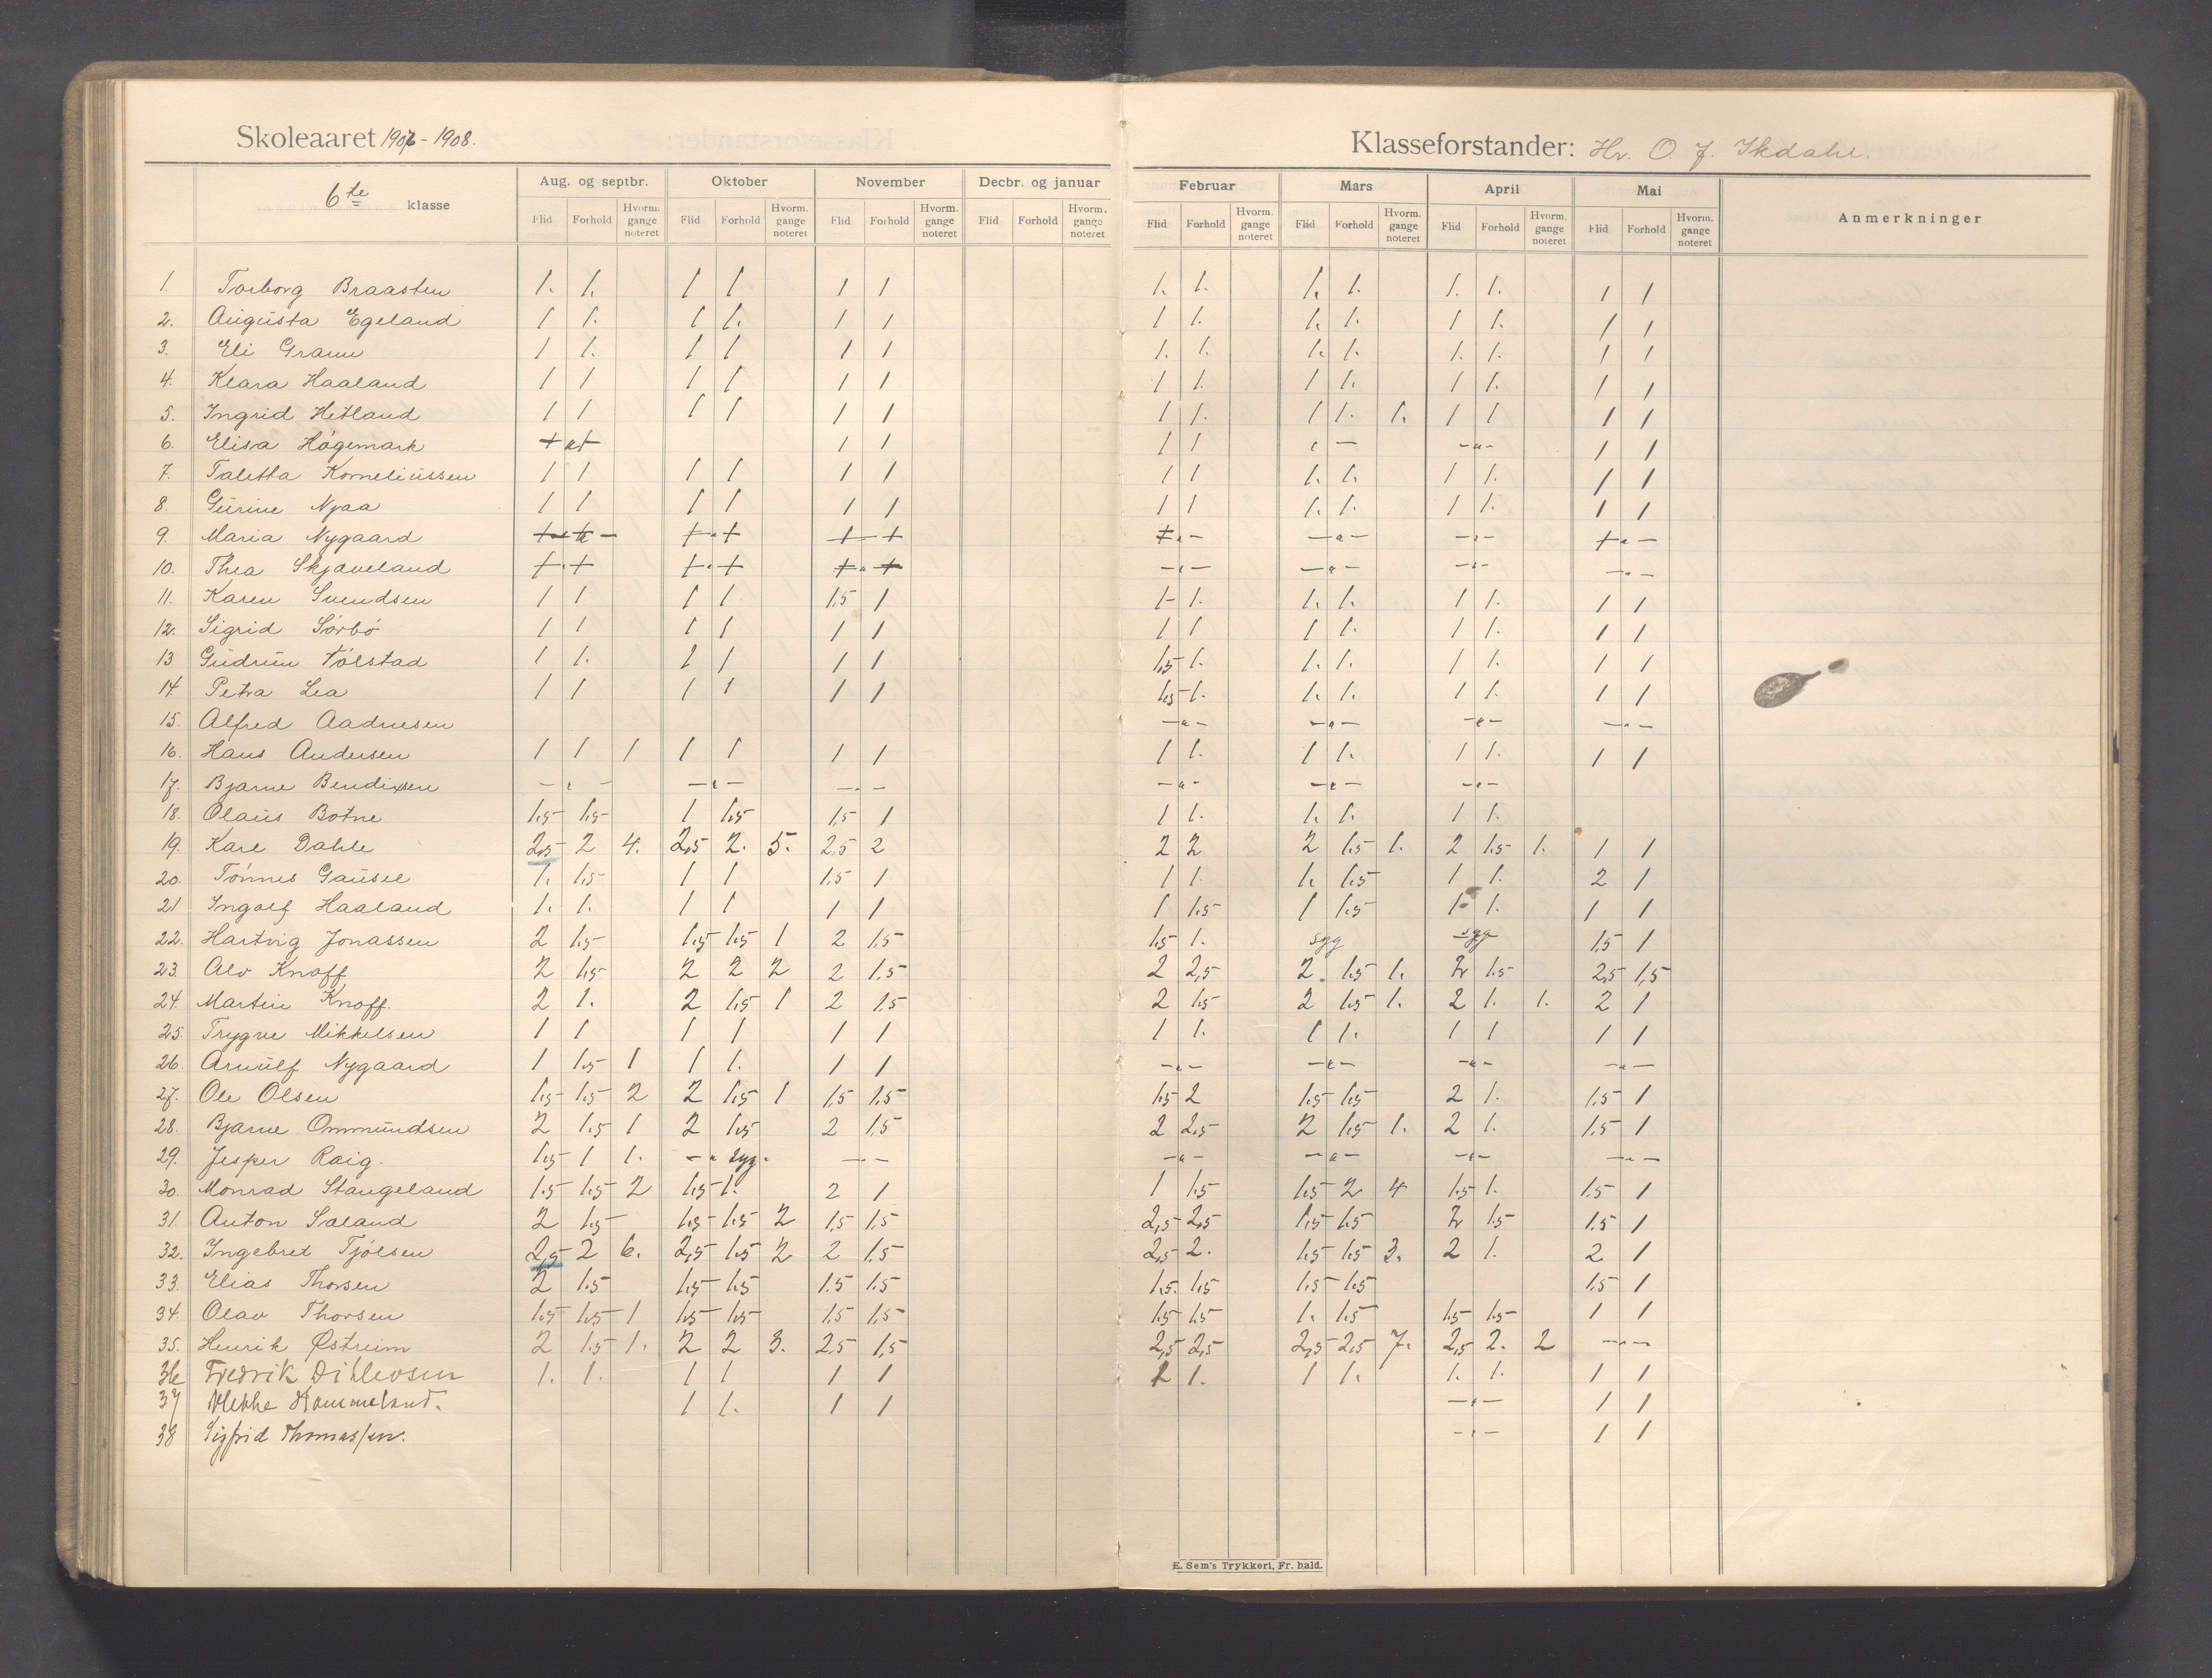 Skoleaaret 1907-1908.
Klasseforstander: Hr. O. J. Skdahl.
6te klasse
Aug. og septbr. Oktober November Decbr. og januar Februar Mars April Mai Anmerkninger
Flid Forhold Hvorm. gange noteret Flid Forhold Hvorm. gange noteret Flid Forhold Hvorm. gange noteret Flid Forhold Hvorm. gange noteret Flid Forhold Hvorm. gange noteret Flid Forhold Hvorm. gange noteret Flid Forhold Hvorm. gange noteret Flid Forhold Hvorm. gange noteret
1. Torborg Braasten 1. 1. 1 1 1 1 1. 1. 1. 1. 1. 1. 1 1
2. Augusta Egeland 1 1. 1 1. 1 1 1 1. 1. 1. 1 1. 1 1
3. Eli Grann 1 1. 1 1 1 1 1. 1. 1. 1. 1. 1. 1 1
4. Klara Haaland 1 1 1 1 1 1 1 1. 1 1. 1 1. 1 1
5. Ingrid Hetland 1 1 1 1 1 1 1 1. 1 1. 1. 1 1 1 1
6. Elisa Högemark 1 1 1 1 — — -"- 1 1
7. Taletta Korneliussen 1 1 1 1 1 1 1 1 1. 1. 1 1. 1 1
8. Gurine Njaa 1 1 1 1 1 1 1 1 1. 1. 1 1. 1 1
9. Maria Nygaard -"- -"- -"- -"- -"- -"- -"-
10. Thea Skjæveland -"- -"- -"- -"- -"- -"- -"-
11. Karen Svendsen 1 1 1 1 1,5 1 1- 1. 1. 1. 1 1. 1 1
12. Sigrid Sörbö 1 1 1 1 1 1 1 1 1 1. 1 1. 1 1
13 Gudrun Tölstad 1 1. 1 1 1 1 1,5 1. 1. 1. 1 1. 1 1
14. Petra Lea 1 1 1 1 1 1 1,5 1. 1. 1. 1 1. 1 1
15. Alfred Aadnesen -"- -"- -"- -"-
16. Hans Andersen 1 1 1 1 1 1 1 1 1. 1 1. 1 1. 1 1
17. Bjarne Bendixsen -"- -"- -"- -"- -"- -"-
18. Olaus Botne 1,5 1,5 1 1,5 1,5 1 1 1. 1. 1. 1 1.
19. Karl Dahle 2,5 2 4. 2,5 2. 5. 2,5 2 2 2 2 1,5 1. 2 1,5 1. 1 1
20. Tönnes Gausel 1. 1,5 1 1 1,5 1 1 1. 1. 1,5 1 1. 2 1
21 Ingolf Haaland 1. 1. 1 1 1 1 1 1,5 1 1,5 1. 1. 1 1
22. Hartvig Jonassen 2 1,5 1,5 1,5 1 2 1,5 1,5 1. syg syg 1,5 1
23. Alv Knoff 2 1,5 2 2 2 2 1,5 2 2,5 2. 1,5 1. 2 1,5 2,5 1,5
24. Martin Knoff. 2 1. 2 1,5 1 2 1,5 2 1,5 2 1,5 1. 2 1. 1. 2 1
25. Trygve Mikkelsen 1 1 1 1 1 1 1 1. 1 1. 1 1 1 1
26. Arnulf Nygaard 1 1,5 1 1 1. 1 1 -"- -"- -"- -"-
27. Ole Olsen 1,5 1,5 2 2 1,5 1 1,5 1,5 1,5 2 1,5 1,5 2 1. 1,5 1
28. Bjarne Ommundsen 2 1,5 1 2 1,5 2 1,5 2 2,5 2 1,5 1. 2 1. 1,5 1
29. Jesper Raig. 1,5 1 1. -"- syg. -"- -"- -"- -"- -"-
30. Monrad Stangeland 1,5 1,5 2 1,5 1. 2 1 1 1,5 1,5 2 4 1,5 1. 1,5 1
31. Anton Saland 2 1,5 1,5 1,5 2 1,5 1,5 2,5 2,5 1,5 1,5 2 1,5 1,5 1
32. Ingebret Tjölsen 2,5 2 6. 2,5 1,5 2 2 1,5 2,5 2. 1,5 1,5 3. 2 1. 2 1
33. Elias Thorsen 2 1,5 1,5 1,5 1,5 1,5 1,5. 1,5 1,5 1,5 1,5 1
34. Olav Thorsen 1,5 1,5 1 1,5 1,5 1,5 1,5 1,5 1,5 1. 1,5 1,5 1,5 1 1
35. Henrik Østreim 2 1,5 1. 2 2 3. 2,5 1,5 2,5 2,5 2,5 2,5 7. 2,5 2. 2 -"-
36 Fredrik Ditlevsen 1. 1. 1 1 1 1 2 1. 1 1. 1. 1. 1 1
37 Mekke Hommeland. 1 1. 1 1 -"- 1 1
38 Sigfrid Thomassen. -"- 1 1
E. Sem's Trykkeri, Fr. hald.